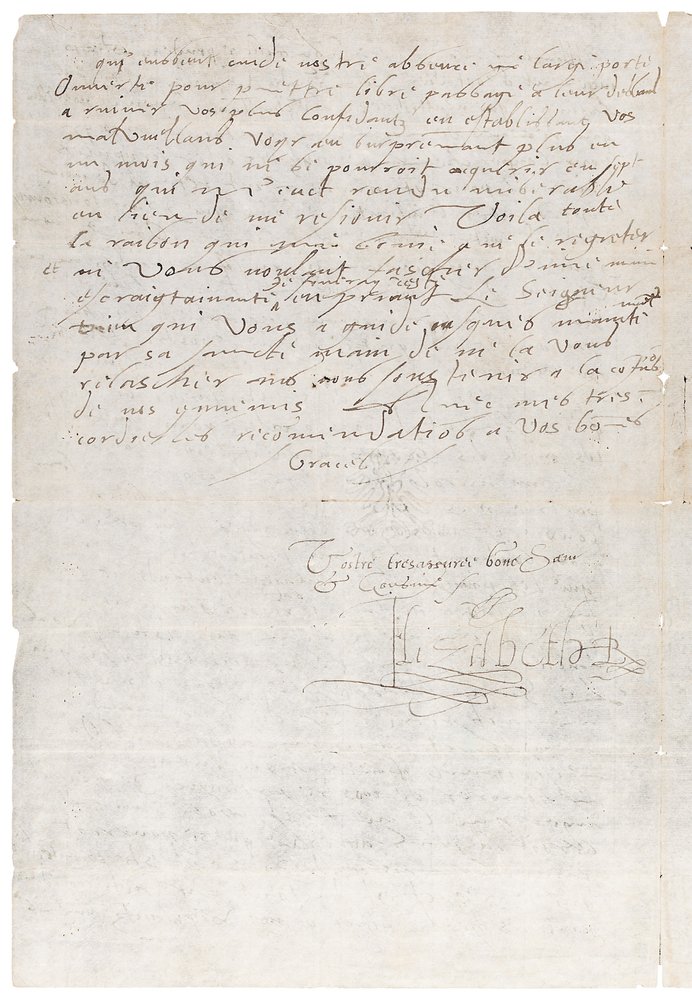 qui eussent cuidé vostre absence une large porte
Ouverte pour mettre libre passage a leur
a ruiner vos plus Confidantz en establissant vos
malvueillans Voyr en surprenant plus en
un mois qui ne se pourroit aquerir en sept
ans qui m'eust rendu miserable
en lieu de me resjouir Voila toute
la raison qui me a ne le regreter
et ne Vous voulant fascher d'une main
je finiray ceste
en priant Le Seigneur
Dieu qui Vous a guidé jusques
par sa saincte main de ne la Vous
relascher ains vous soustenir a la
de vos ennemis Avec mes tres
cordielles recomendatios a Vos bones
Graces
Vostre tresasseuree bone Sœur
& Cousine
Elizabeth R